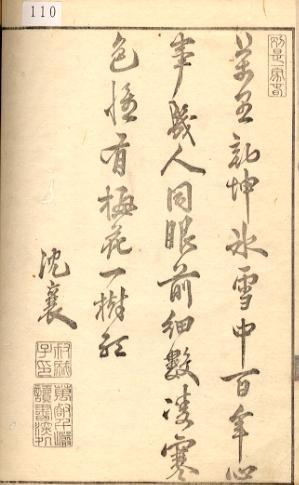 110
萬里乾坤冰雪中百年心
事幾人同眼前細數凌寒
色惟有梅花一樹紅
沈襄